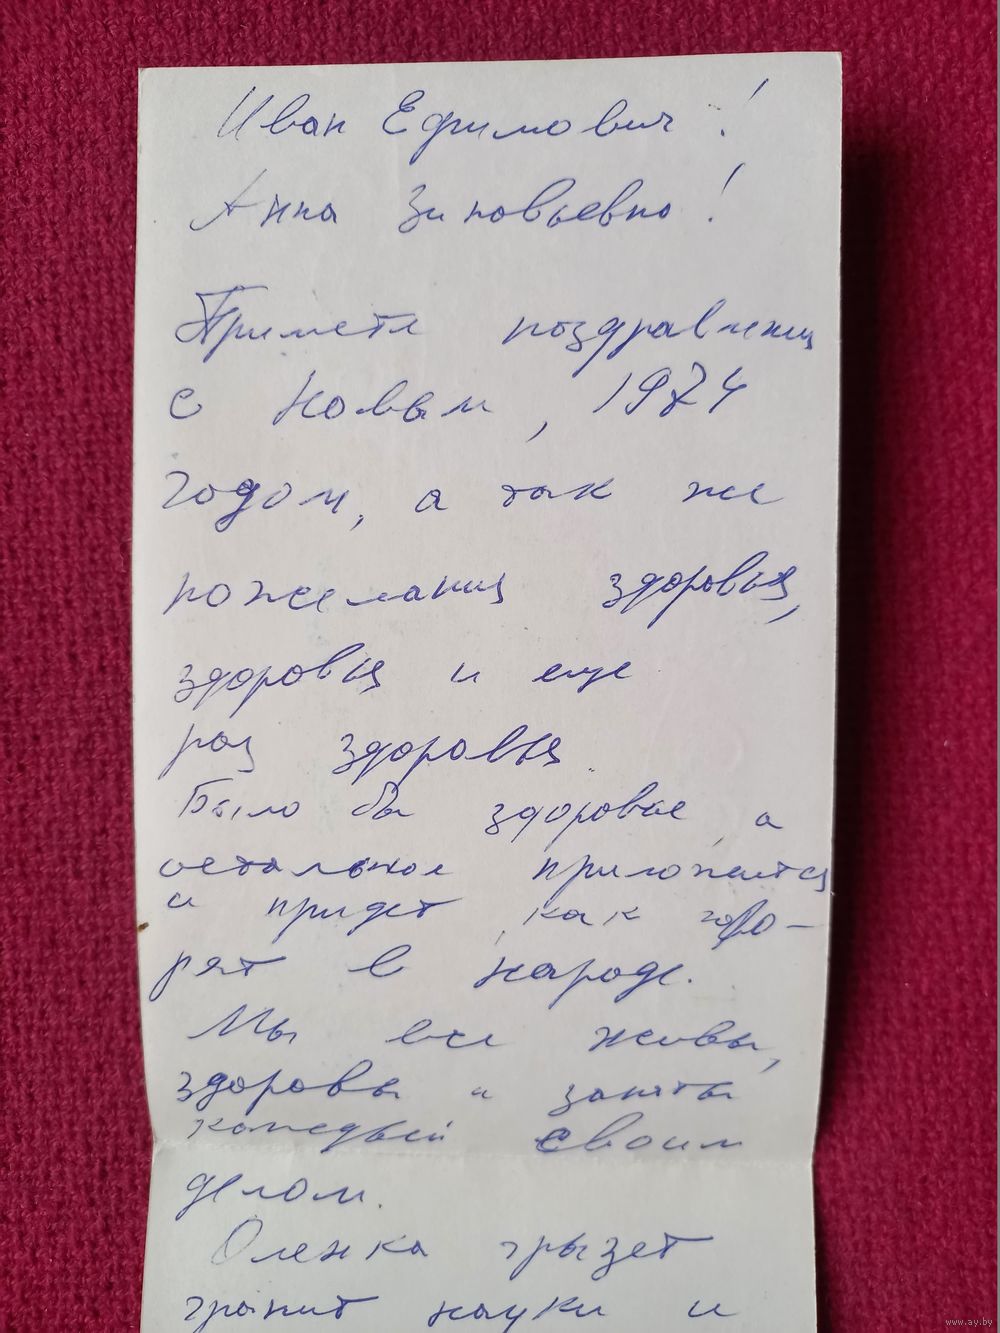 Иван Ефимович!
Анна Зиновьевна!
Примите поздравления
с Новым, 1974
годом, а так же
пожелания здоровья,
здоровья и еще
раз здоровья.
Было бы здоровье, а
остальное приложится
и придет, как гово-
рят в народе.
Мы все живы,
здоровы и заняты
каждый своим
делом.
Оленка грызет
гранит науки и
www.ay.by